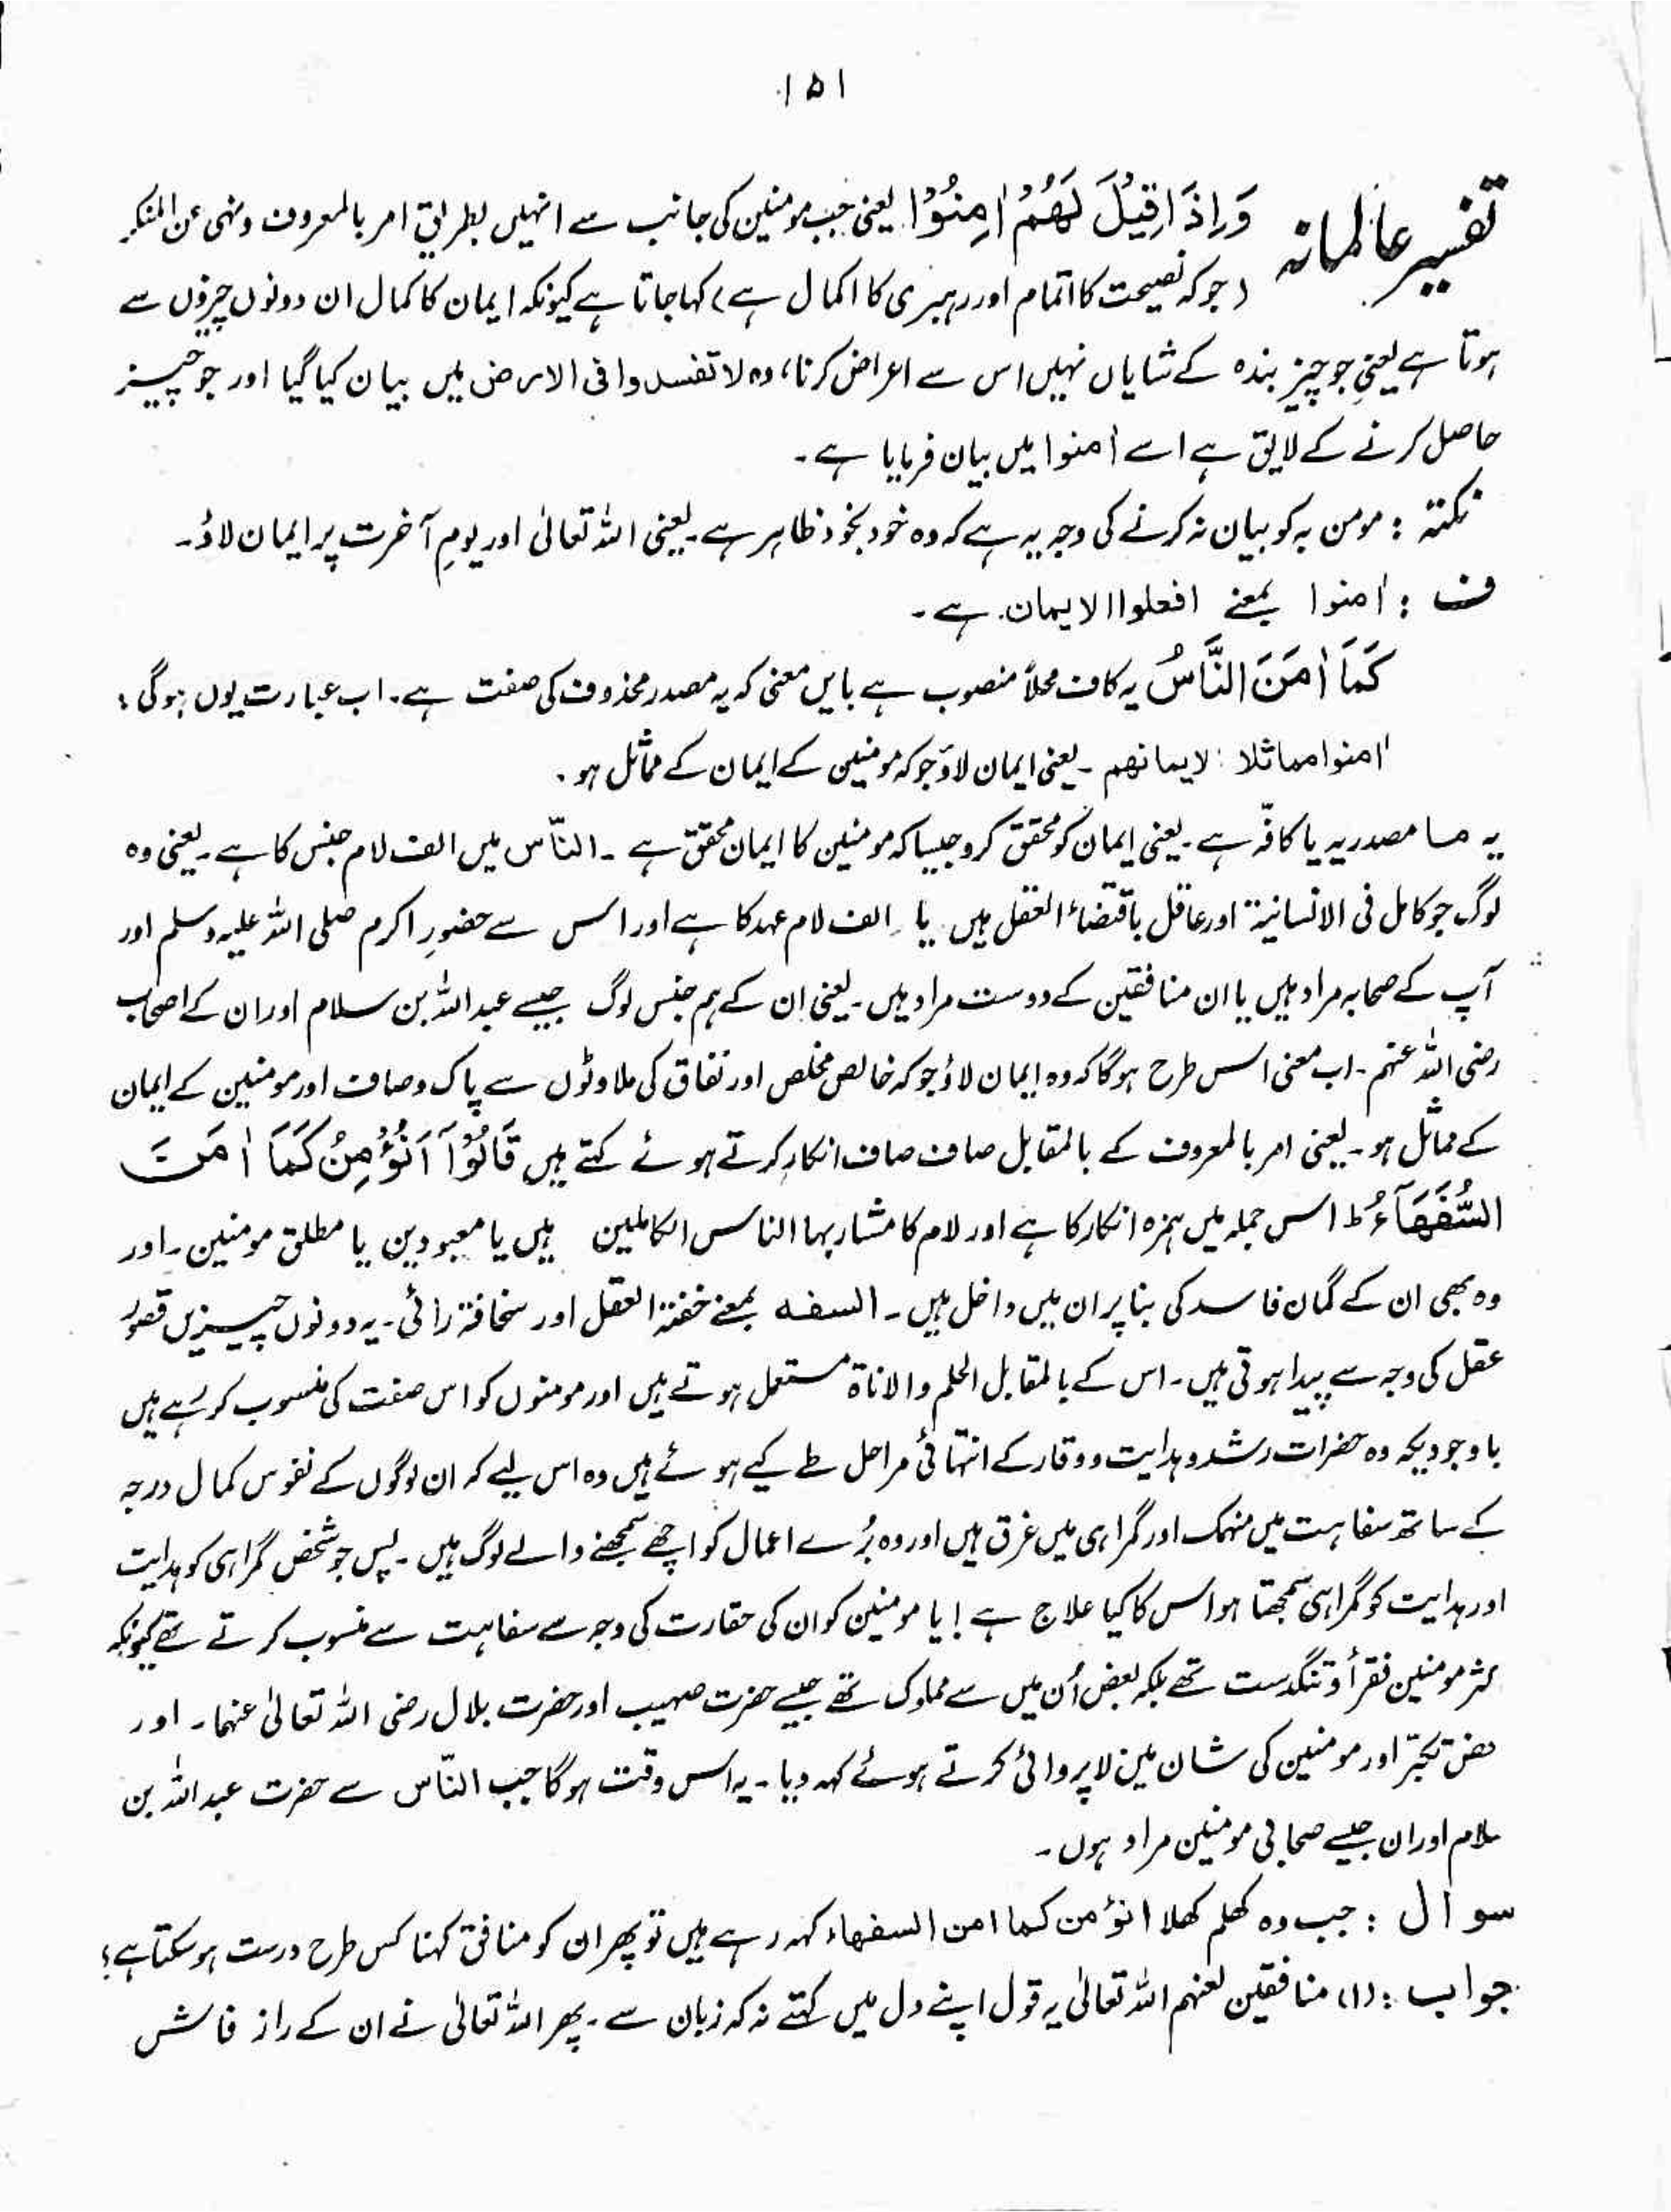 ۱۵۱
تفسیر عالمانہ وَاِذَا قِیْلَ لَھُمْ اٰمِنُوْا یعنی جب مومنین کی جانب سے انہیں بطریقِ امر بالمعروف ونہی عن المنکر
(جو کہ نصیحت کا اتمام اور رہبری کا اکمال ہے) کہا جاتا ہے کیونکہ ایمان کا کمال ان دونوں چیزوں سے
ہوتا ہے یعنی جو چیز بندہ کے شایاں نہیں اس سے اعراض کرنا، وہ لا تفسدوا فی الارض میں بیان کیا گیا اور جو چیز
حاصل کرنے کے لایق ہے اسے اٰمنوا میں بیان فرمایا ہے۔
نکتہ : مومن بہ کو بیان نہ کرنے کی وجہ یہ ہے کہ وہ خود بخود ظاہر ہے۔ یعنی اللہ تعالیٰ اور یومِ آخرت پر ایمان لاؤ۔
ف : اٰمنوا بمعنے افعلوا الایمان ہے۔
کَمَآ اٰمَنَ النَّاسُ یہ کاف محلاً منصوب ہے بایں معنی کہ یہ مصدر محذوف کی صفت ہے۔ اب عبارت یوں ہوگی :
اٰمنوا مماثلا لایمانھم ۔ یعنی ایمان لاؤ جو کہ مومنین کے ایمان کے مماثل ہو۔
یہ ما مصدریہ یا کافّہ ہے۔ یعنی ایمان کو محقق کرو جیسا کہ مومنین کا ایمان محقق ہے ۔ النّاس میں الف لام جنس کا ہے۔ یعنی وہ
لوگ جو کامل فی الانسانیۃ اور عاقل باقتضاء العقل ہیں یا الف لام عہد کا ہے اور اس سے حضورِ اکرم صلی اللہ علیہ وسلم اور
آپ کے صحابہ مراد ہیں یا ان منافقین کے دوست مراد ہیں۔ یعنی ان کے ہم جنس لوگ جیسے عبداللہ بن سلام اور ان کے اصحاب
رضی اللہ عنہم ۔ اب معنی اس طرح ہوگا کہ وہ ایمان لاؤ جو کہ خالص مخلص اور نفاق کی ملاوٹوں سے پاک وصاف اور مومنین کے ایمان
کے مماثل ہو۔ یعنی امر بالمعروف کے بالمقابل صاف صاف انکار کرتے ہوئے کہتے ہیں قَالُوْآ اَنُؤْمِنُ کَمَآ اٰمَنَ
السُّفَھَآءُ ط اس جملہ میں ہمزہ انکار کا ہے اور لام کا مشار بہا الناس الکاملین ہیں یا معہودین یا مطلق مومنین۔ اور
وہ بھی ان کے گمان فاسد کی بنا پر ان میں داخل ہیں ۔ السفہ بمعنے خفۃ العقل اور سخافۃ رائی۔ یہ دونوں چیزیں قصورِ
عقل کی وجہ سے پیدا ہوتی ہیں۔ اس کے بالمقابل الحلم والاناۃ مستعمل ہوتے ہیں اور مومنوں کو اس صفت کی منسوب کر رہے ہیں
باوجودیکہ وہ حضرات رشد و ہدایت و وقار کے انتہائی مراحل طے کیے ہوئے ہیں وہ اس لیے کہ ان لوگوں کے نفوس کمال درجہ
کے ساتھ سفاہت میں منہمک اور گمراہی میں غرق ہیں اور وہ بُرے اعمال کو اچھے سمجھنے والے لوگ ہیں ۔ پس جو شخص گمراہی کو ہدایت
اور ہدایت کو گمراہی سمجھتا ہو اس کا کیا علاج ہے ! یا مومنین کو ان کی حقارت کی وجہ سے سفاہت سے منسوب کرتے تھے کیونکہ
کثر مومنین فقرأ و تنگدست تھے بلکہ بعض اُن میں سے مملوک تھے جیسے حضرت صہیب اور حضرت بلال رضی اللہ تعالیٰ عنہما۔ اور
حض تکبّر اور مومنین کی شان میں لاپروائی کرتے ہوئے کہہ دیا۔ یہ اس وقت ہوگا جب النّاس سے حضرت عبداللہ بن
سلام اور ان جیسے صحابی مومنین مراد ہوں۔
سوال : جب وہ کھلم کھلا انؤمن کما اٰمن السفھاء کہہ رہے ہیں تو پھر ان کو منافق کہنا کس طرح درست ہو سکتا ہے؟
جواب : (۱) منافقین لعنہم اللہ تعالیٰ یہ قول اپنے دل میں کہتے نہ کہ زبان سے۔ پھر اللہ تعالیٰ نے ان کے راز فاش